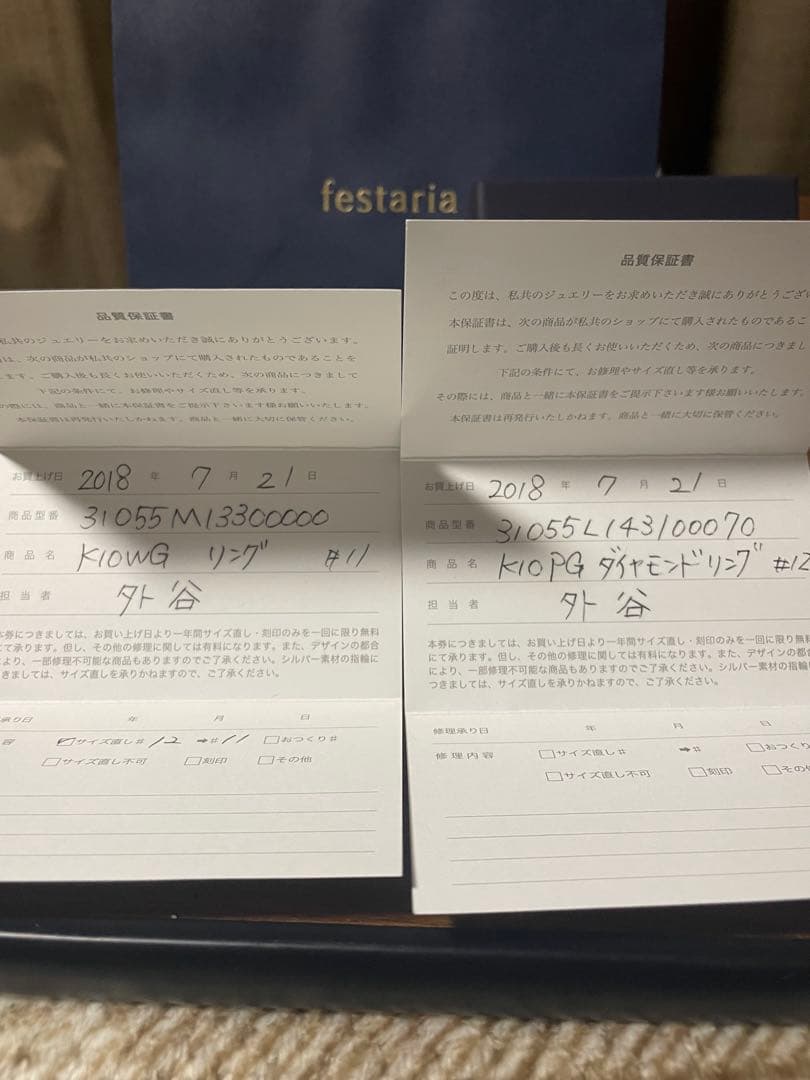 festaria
品質保証書
私共のジュエリーをお求めいただき誠にありがとうございます。
は、次の商品が私共のショップにて購入されたものであることを
します。ご購入後も長くお使いいただくため、次の商品につきまして
下記の条件にて、お修理やサイズ直し等を承ります。
の際には、商品と一緒に本保証書をご提示下さいます様お願いいたします。
本保証書は再発行いたしかねます。商品と一緒に大切に保管ください。
お買上げ日 2018 年 7 月 21 日
商品型番 31055M13300000
商品名 K10WG リング #11
担当者 外谷
本券につきましては、お買い上げ日より一年間サイズ直し・刻印のみを一回に限り無料
にて承ります。但し、その他の修理に関しては有料になります。また、デザインの都合
により、一部修理不可能な商品もありますのでご了承ください。シルバー素材の指輪に
つきましては、サイズ直しを承りかねますので、ご了承ください。
承り日 年 月 日
容 ☑サイズ直し# 12 ➔# 11 □おつくり#
□サイズ直し不可 □刻印 □その他
品質保証書
この度は、私共のジュエリーをお求めいただき誠にありがとうござい
本保証書は、次の商品が私共のショップにて購入されたものであるこ
証明します。ご購入後も長くお使いいただくため、次の商品につきまし
下記の条件にて、お修理やサイズ直し等を承ります。
その際には、商品と一緒に本保証書をご提示下さいます様お願いいたします。
本保証書は再発行いたしかねます。商品と一緒に大切に保管ください。
お買上げ日 2018 年 7 月 21 日
商品型番 31055L143100070
商品名 K10PG ダイヤモンドリング #12
担当者 外谷
本券につきましては、お買い上げ日より一年間サイズ直し・刻印のみを一回に限り無料
にて承ります。但し、その他の修理に関しては有料になります。また、デザインの都合
により、一部修理不可能な商品もありますのでご了承ください。シルバー素材の指輪に
つきましては、サイズ直しを承りかねますので、ご了承ください。
修理承り日 年 月 日
修理内容 □サイズ直し# ➔# □おつくり
□サイズ直し不可 □刻印 □その他